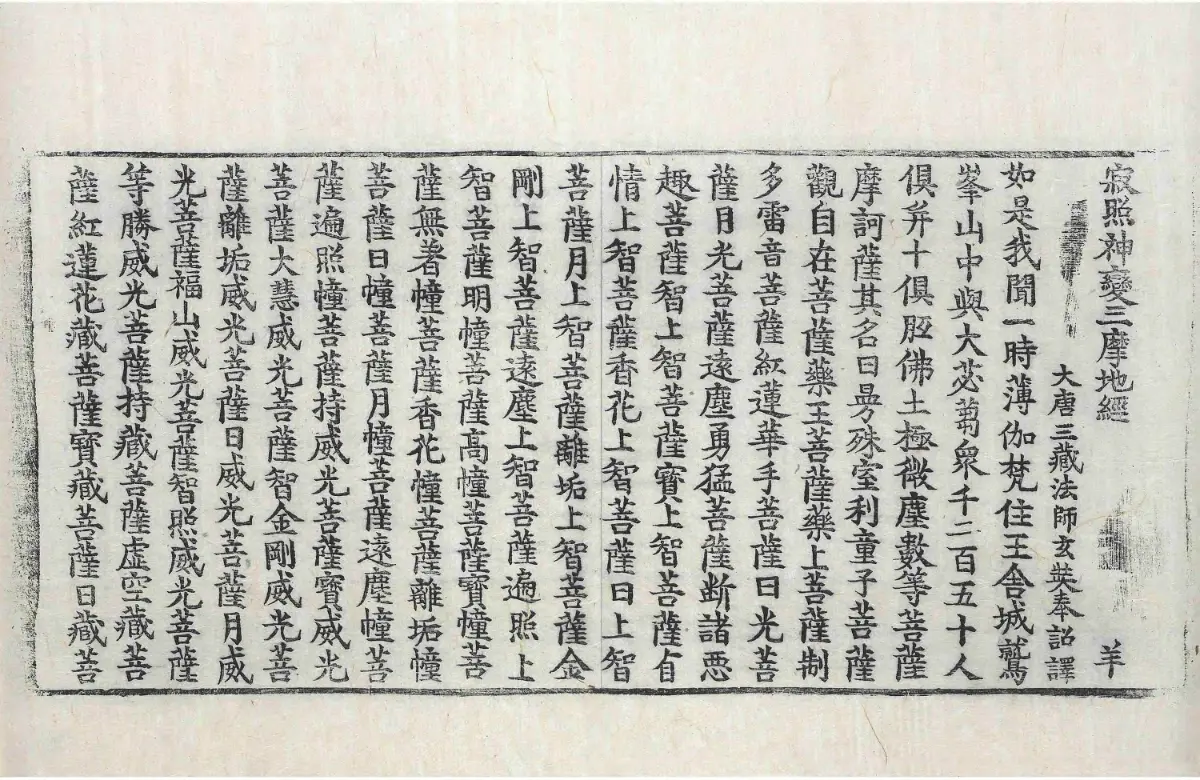 寂照神變三摩地經 羊
大唐三藏法師玄奘奉 詔譯
如是我聞一時薄伽梵住王舍城鷲
峯山中與大苾蒭衆千二百五十人
俱并十俱胝佛土極微塵數等菩薩
摩訶薩其名曰曼殊室利童子菩薩
觀自在菩薩藥王菩薩藥上菩薩制
多雷音菩薩紅蓮華手菩薩日光菩
薩月光菩薩遠塵勇猛菩薩断諸惡
趣菩薩智上智菩薩寶上智菩薩
情上智菩薩香花上智菩薩日上智
菩薩月上智菩薩離垢上智菩薩金
剛上智菩薩遠塵上智菩薩遍照上
智菩薩明幢菩薩高幢菩薩寶幢菩
薩無著幢菩薩香花幢菩薩離垢幢
菩薩日幢菩薩月幢菩薩遠塵幢菩
薩遍照幢菩薩持威光菩薩寶威光
菩薩大慧威光菩薩智金剛威光菩
薩離垢威光菩薩日威光菩薩月威
光菩薩福山威光菩薩智照威光菩薩
等勝威光菩薩持藏菩薩虚空藏菩
薩紅蓮花藏菩薩寶藏菩薩日藏菩